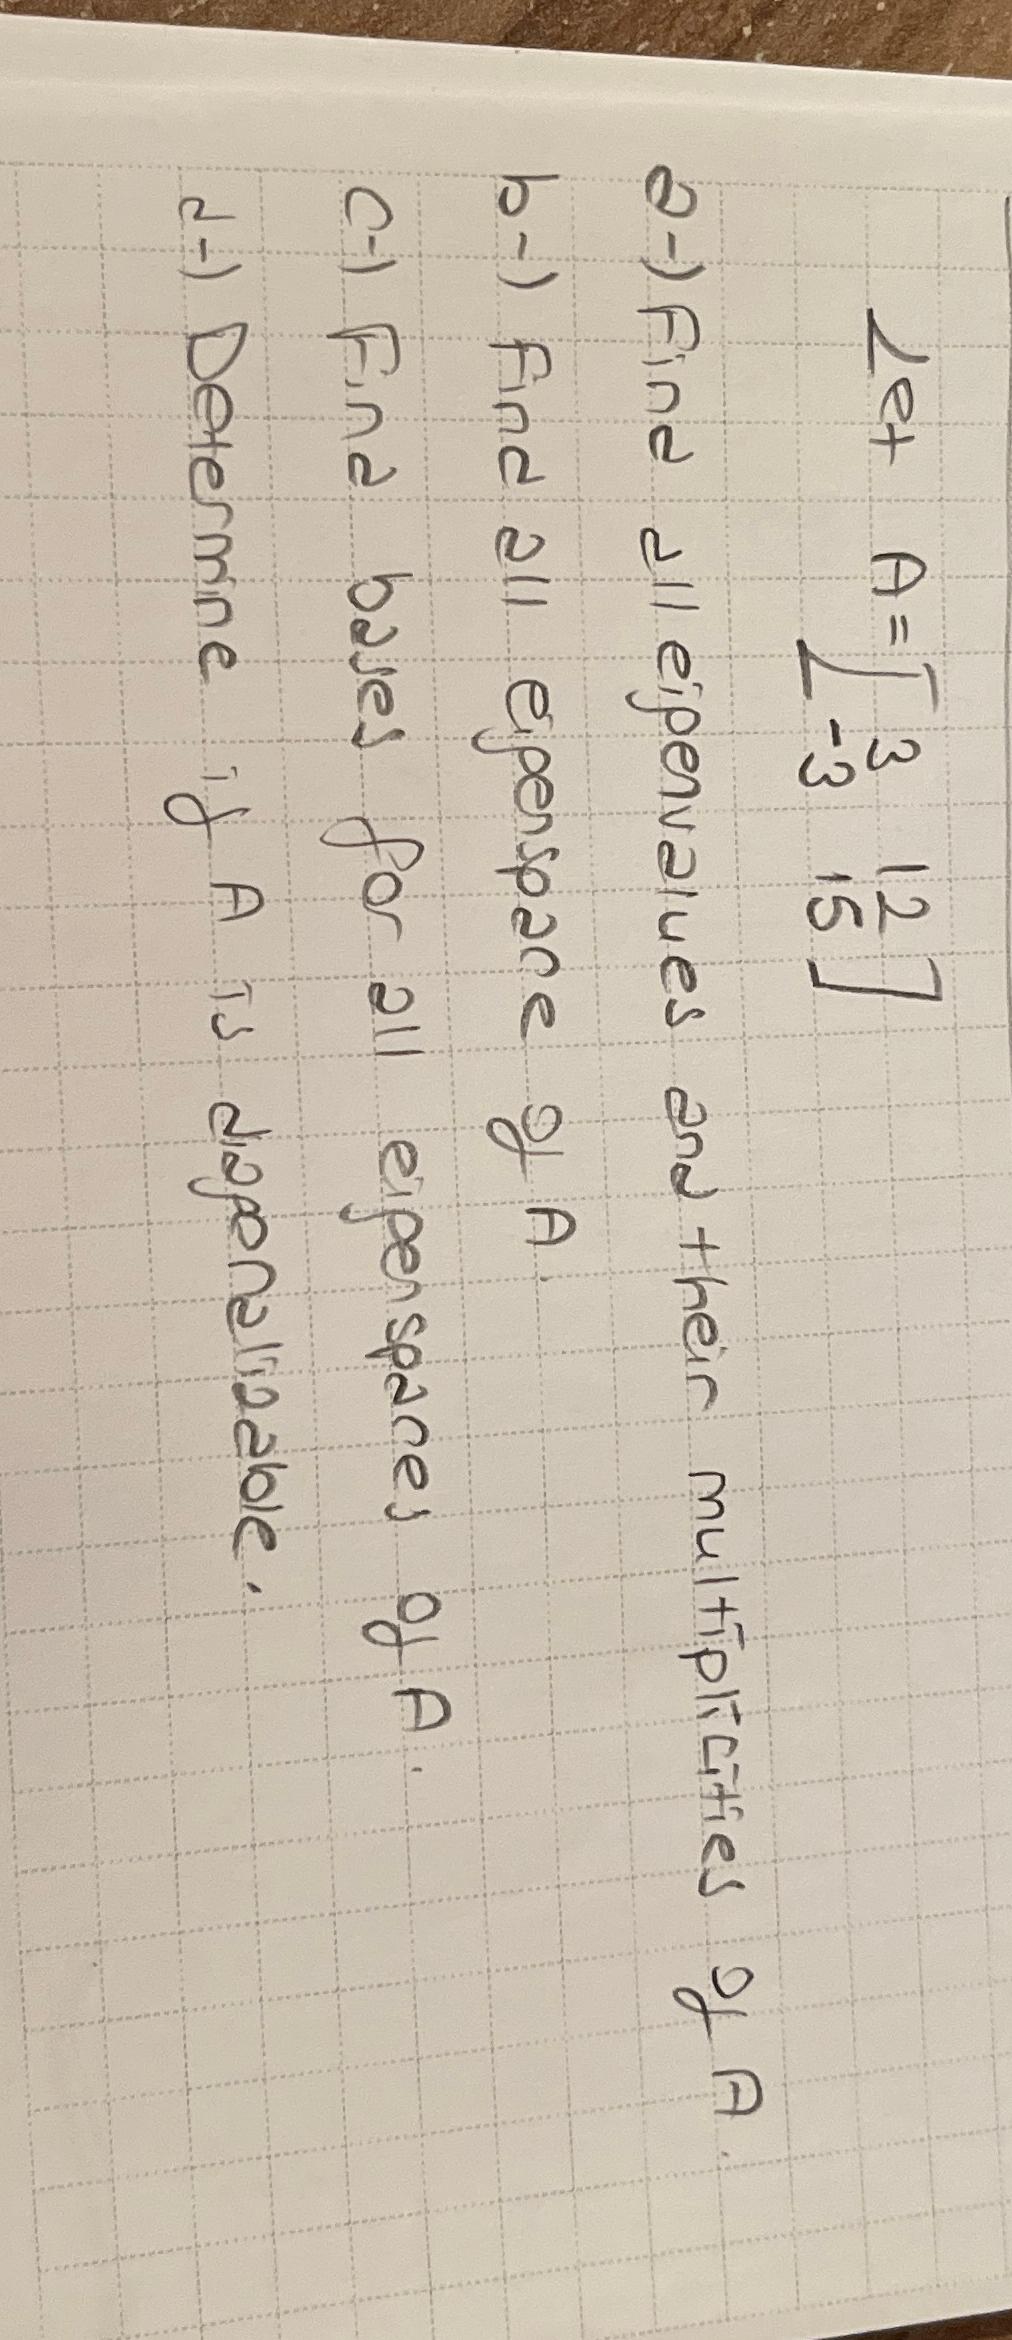 Let A = [ 3 12
-3 15 ]
a-) Find all eigenvalues and their multiplicities of A.
b-) Find all eigenspace of A.
c-) Find bases for all eigenspaces of A.
d-) Determine if A is diagonalizable.